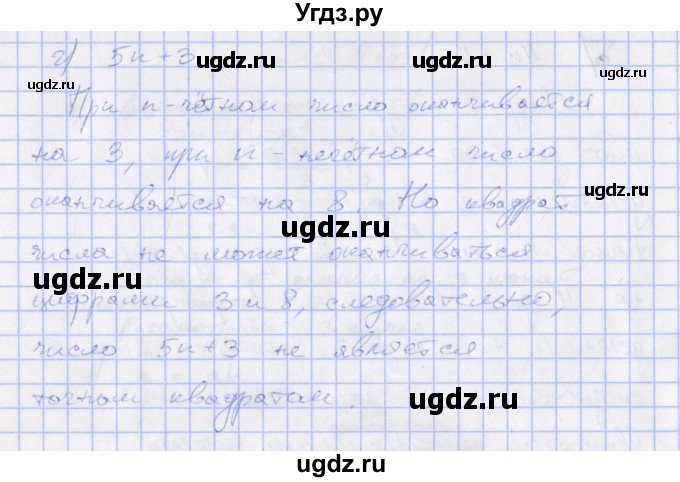 Угдз.ру
г) 5n+3
При n-чётном число оканчивается
на 3, при n - нечётном число
оканчивается на 8. Но квадрат
числа не может оканчиваться
цифрами 3 и 8, следовательно,
число 5n+3 не является
точным квадратом.
ugdz.ru
ugdz.ru
ugdz.ru
ugdz.ru
ugdz.ru
ugdz.ru
ugdz.ru
ugdz.ru
ugdz.ru
ugdz.ru
ugdz.ru
ugdz.ru